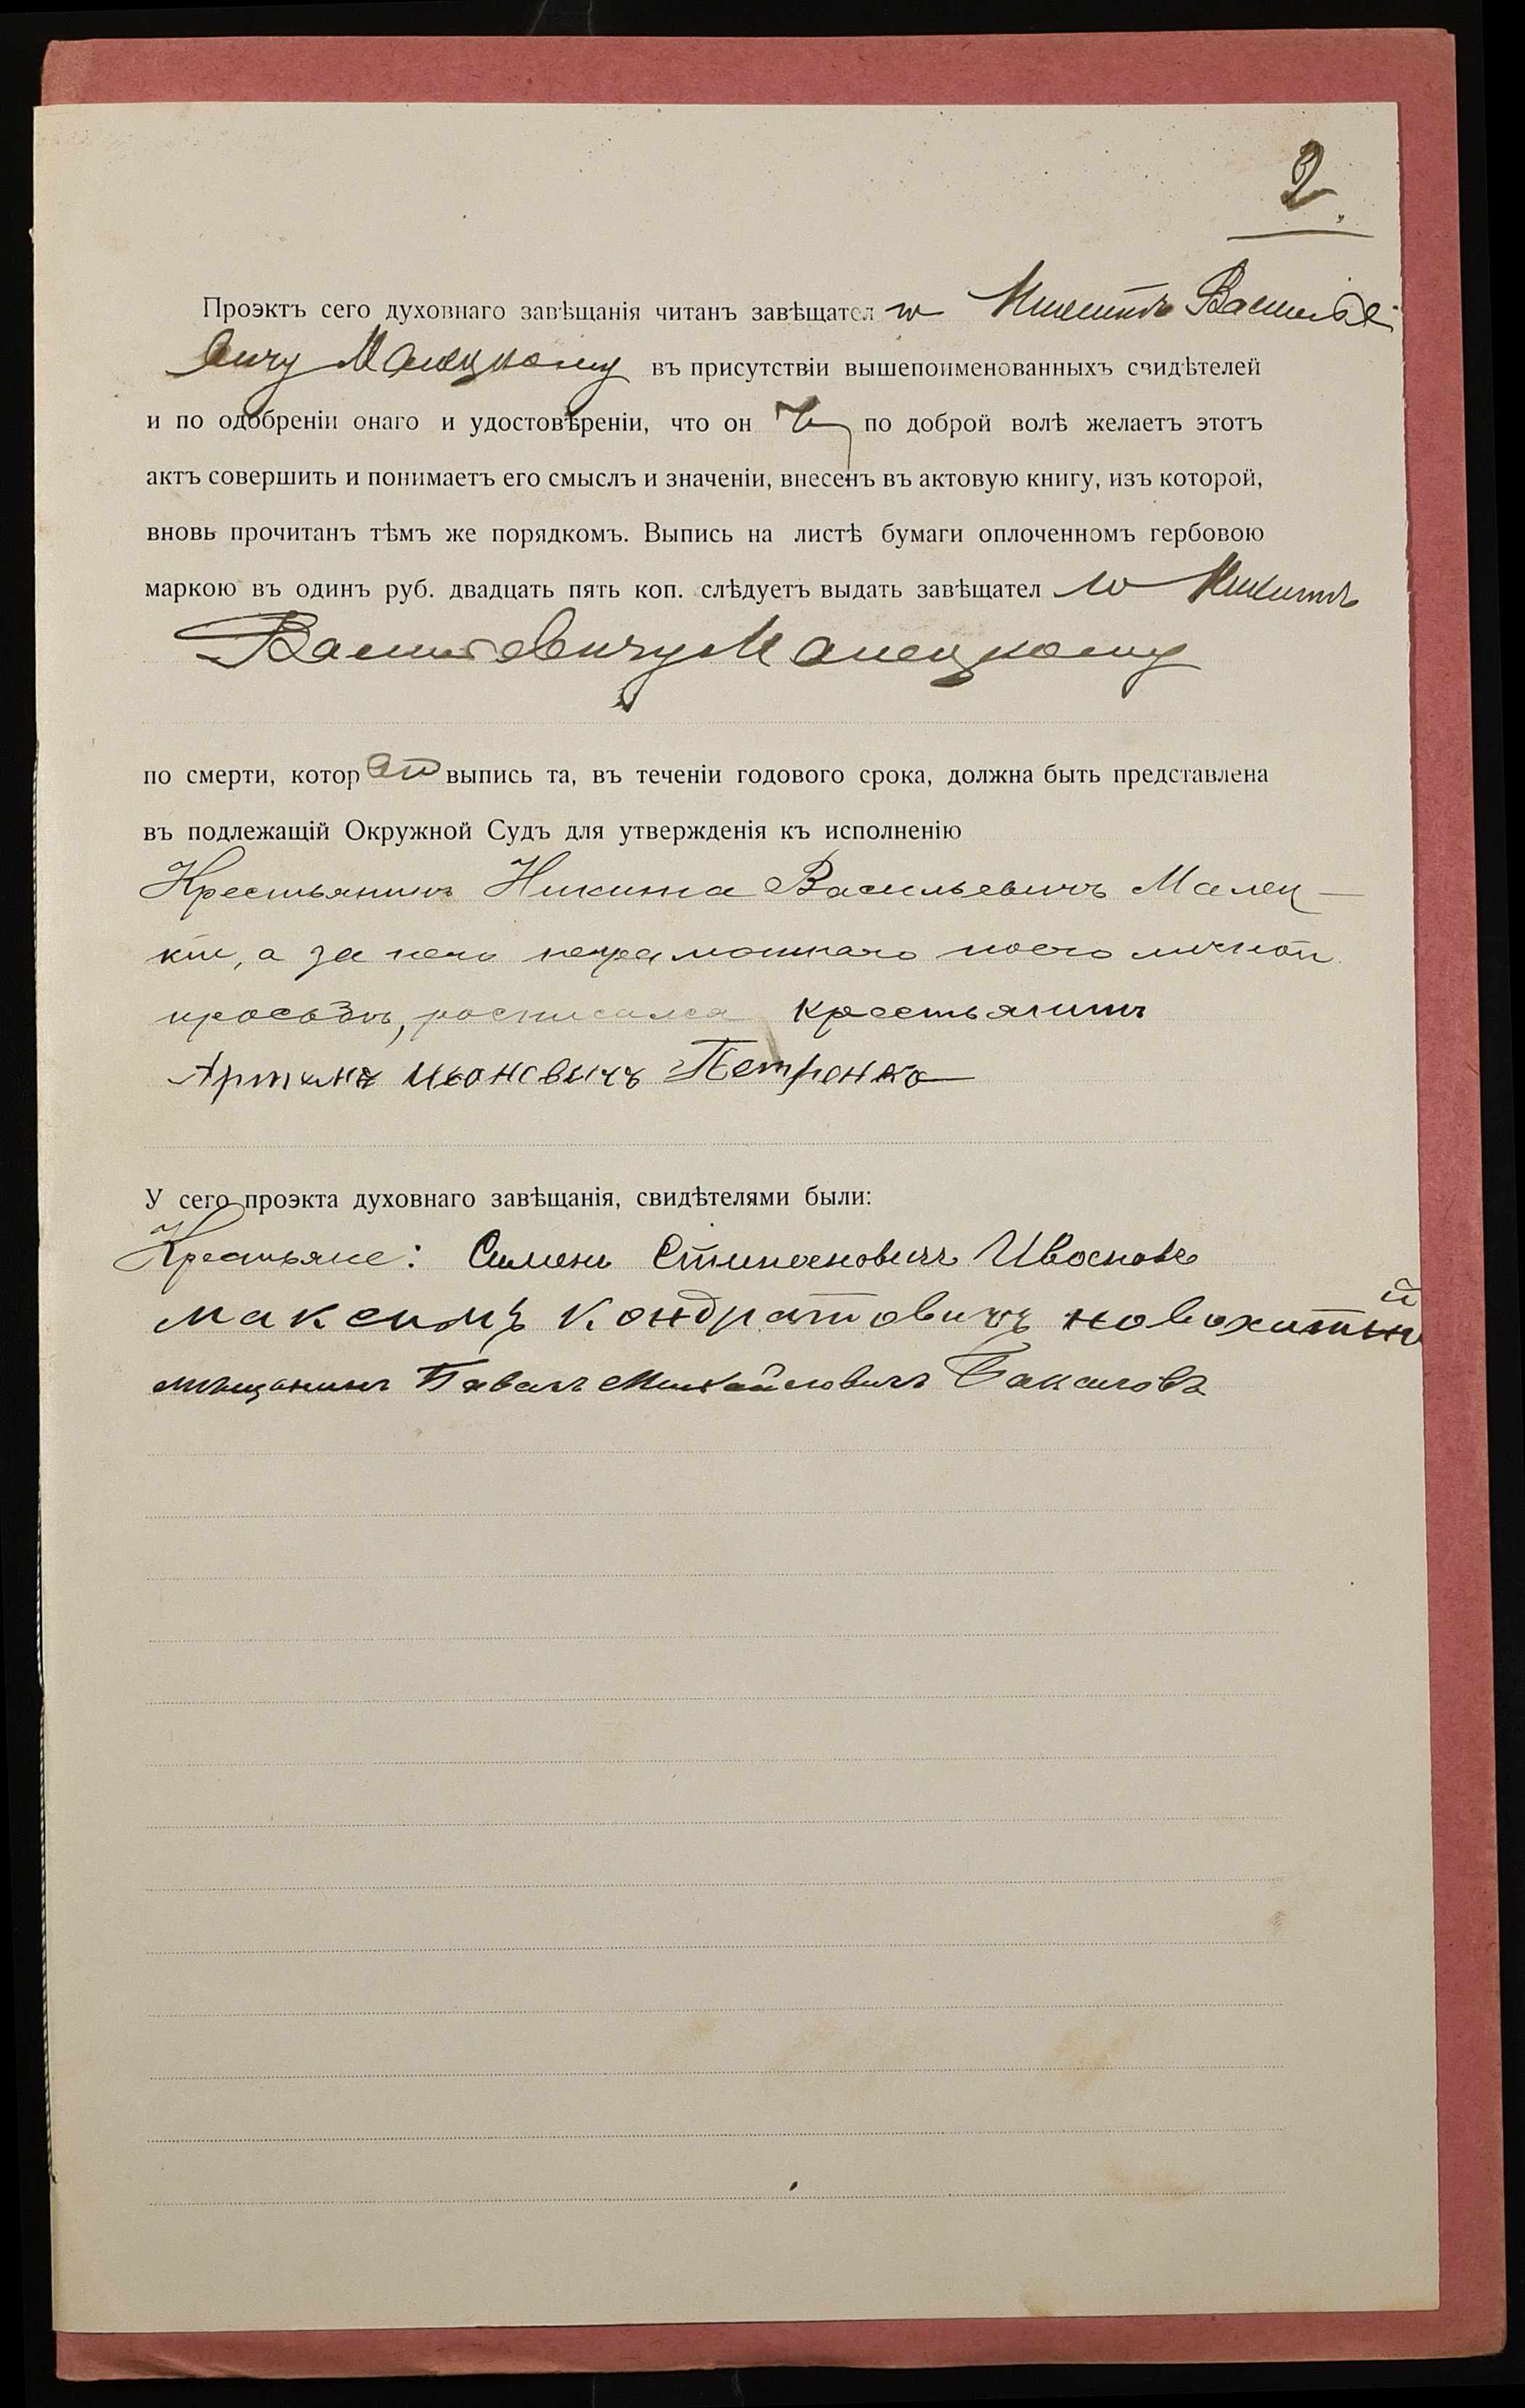 2.
Проэктъ сего духовнаго завѣщанія читанъ завѣщател ю Никитѣ Василье
вичу Малецкому въ присутствіи вышепоименованныхъ свидѣтелей
и по одобреніи онаго и удостовѣреніи, что он ъ по доброй волѣ желаетъ этотъ
актъ совершить и понимаетъ его смыслъ и значеніи, внесенъ въ актовую книгу, изъ которой,
вновь прочитанъ тѣмъ же порядкомъ. Выпись на листѣ бумаги оплоченномъ гербовою
маркою въ одинъ руб. двадцать пять коп. слѣдуетъ выдать завѣщател ю Никитѣ
Васильевичу Малецкому
по смерти, котор аго выпись та, въ теченіи годового срока, должна быть представлена
въ подлежащій Окружной Судъ для утвержденія къ исполненію
Крестьянинъ Никита Васильевичъ Малец-
кій, а за него неграмотнаго по его личной
просьбѣ, росписался крестьянинъ
Артемъ Ивановичъ Петренко
У сего проэкта духовнаго завѣщанія, свидѣтелями были:
Крестьяне: Сименъ Ивановъ
Максимъ Кондратовичъ
мѣщанинъ Павелъ Михайловичъ Бакаловъ